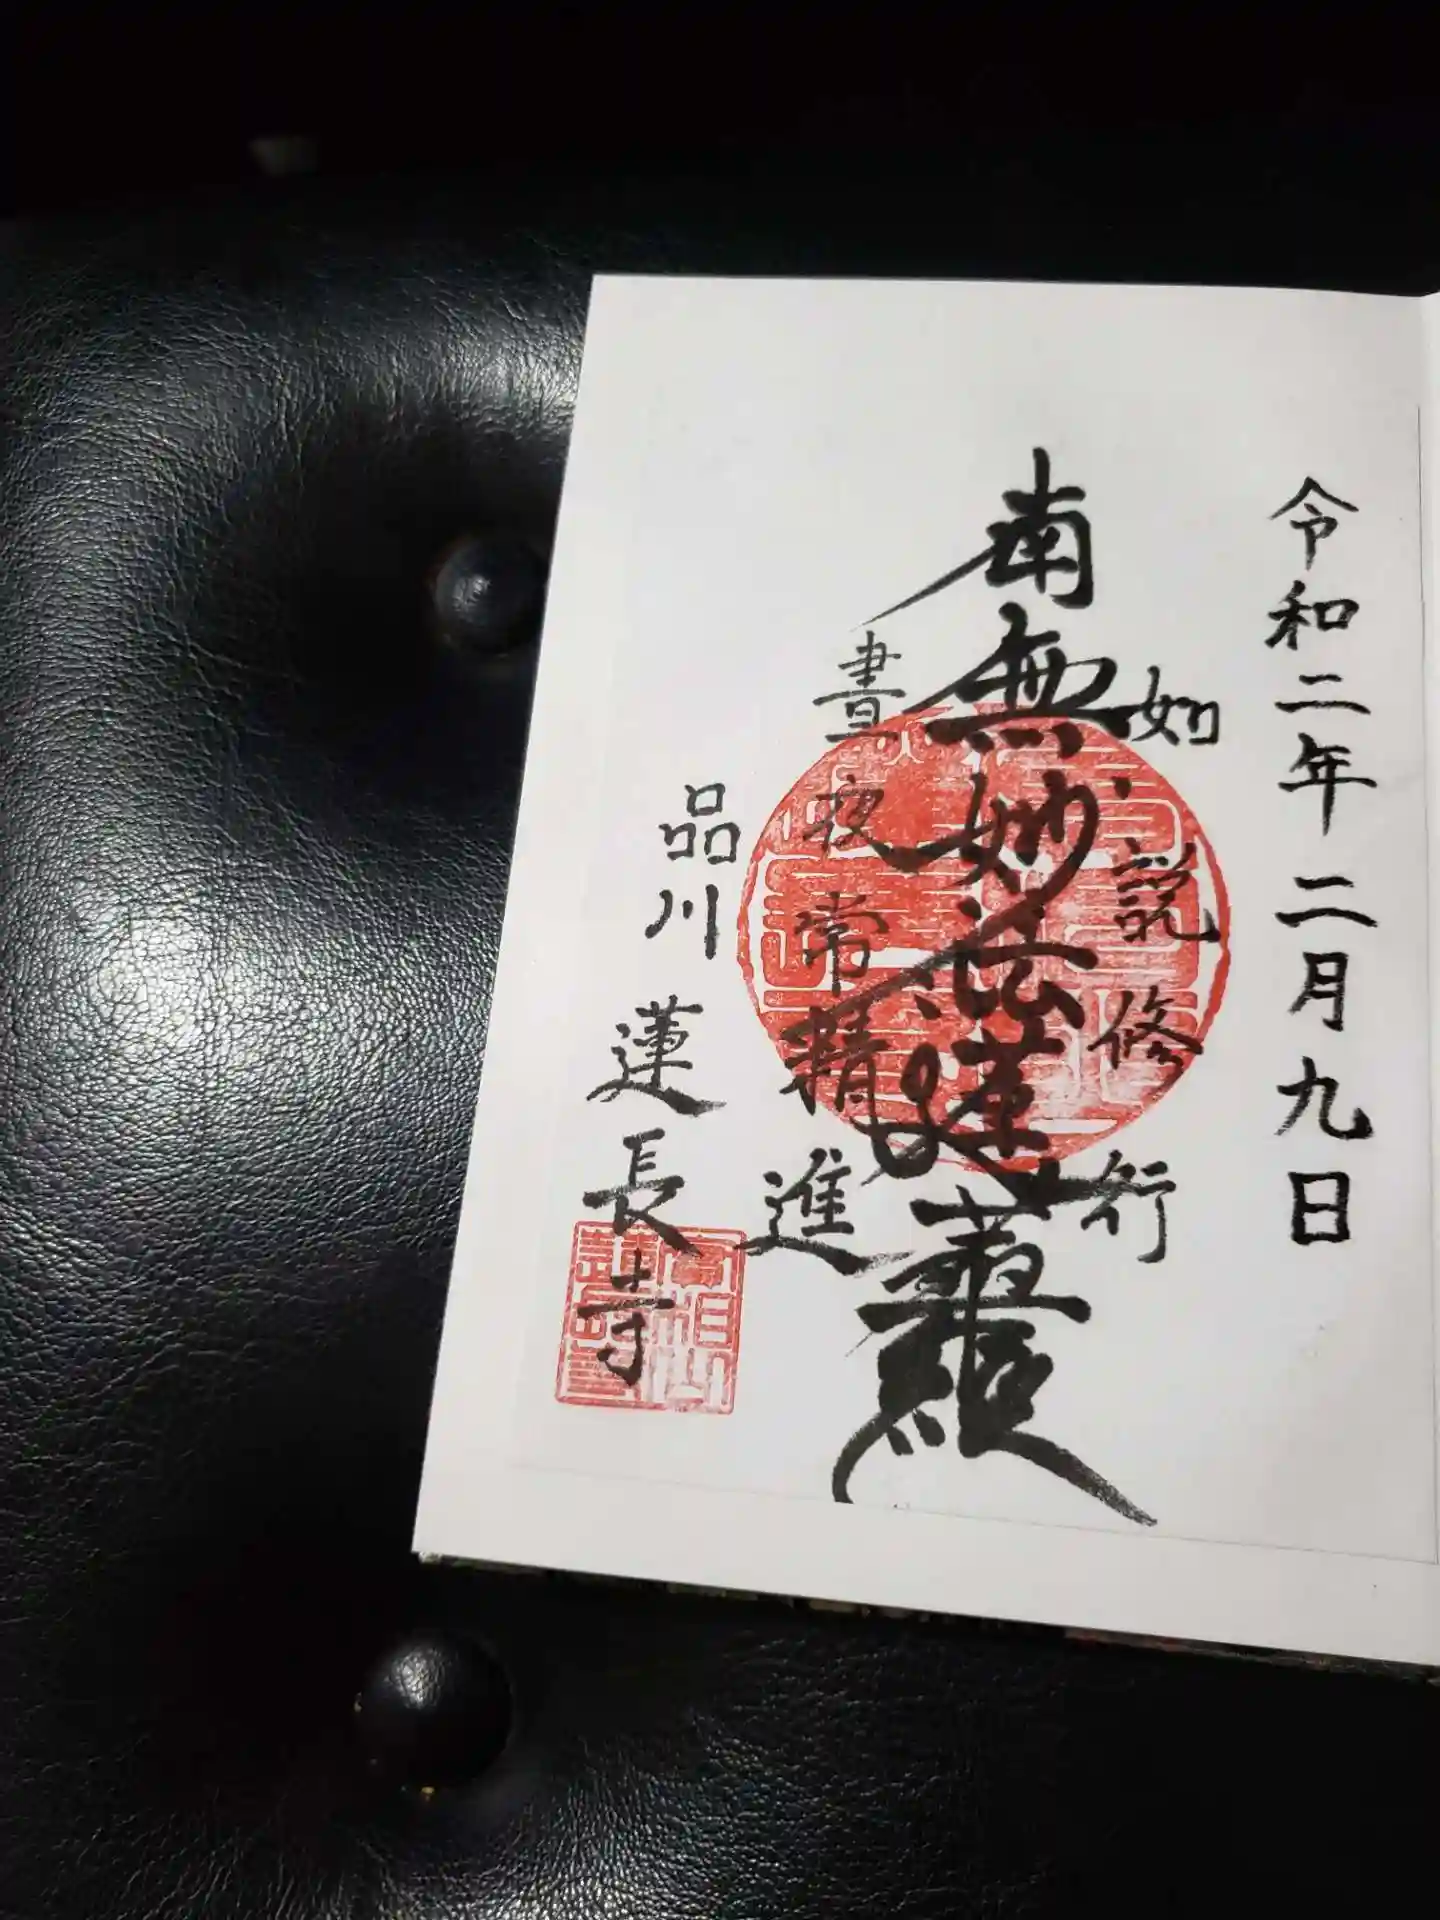 令和二年二月九日
如説修行
南無妙法蓮華経
晝夜常精進
品川 蓮長寺